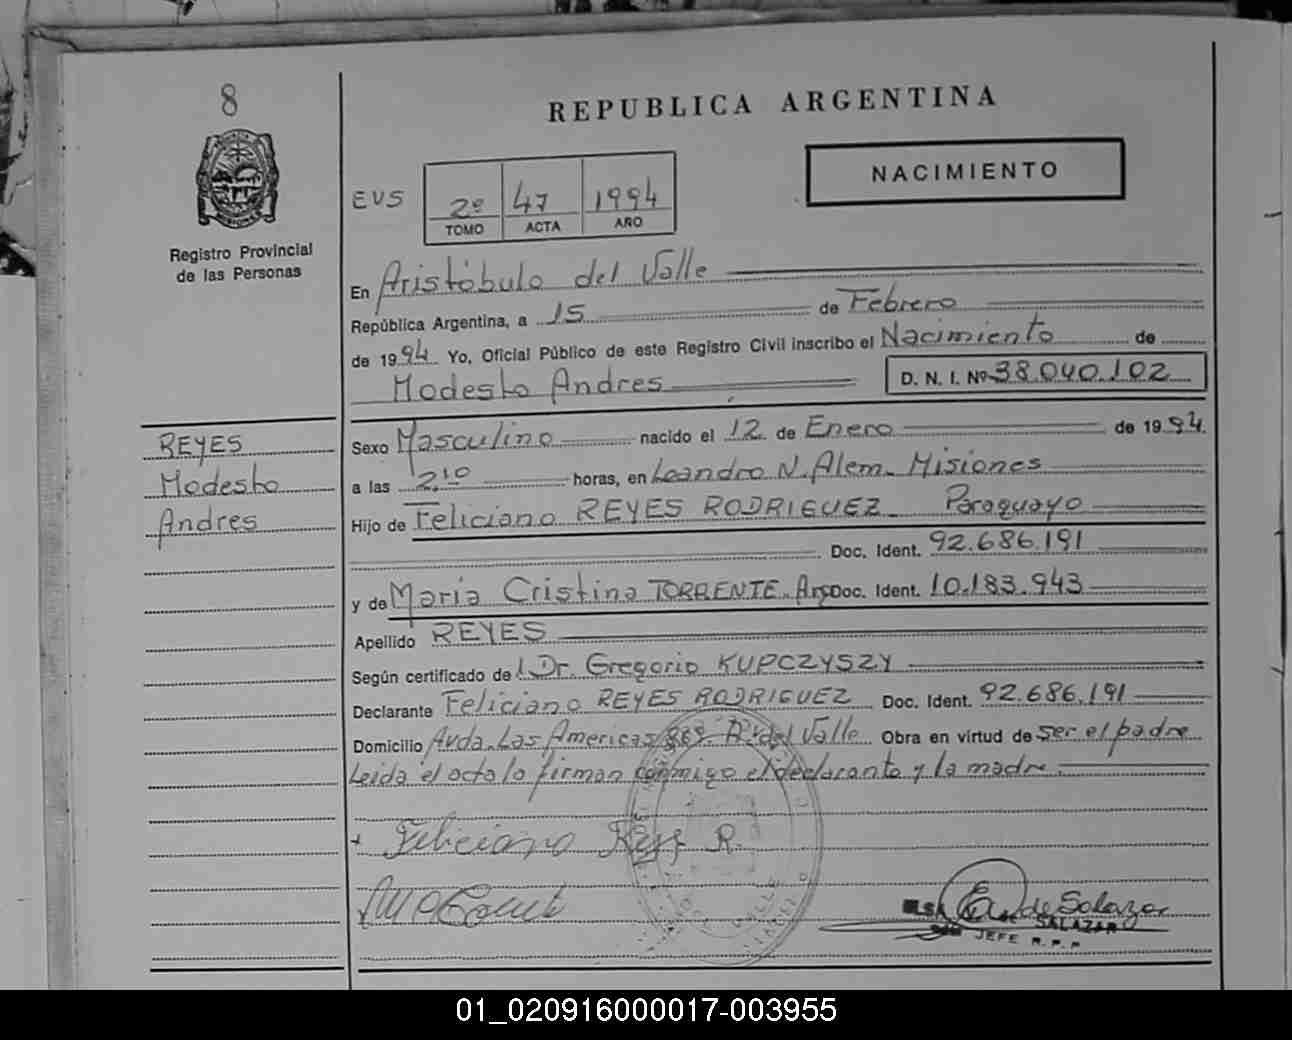 8
REPUBLICA ARGENTINA
NACIMIENTO
EVS 2º 47 1994
TOMO ACTA AÑO
Registro Provincial
de las Personas
En Aristóbulo del Valle
República Argentina, a 15 de Febrero
de 1994 Yo, Oficial Público de este Registro Civil inscribo el Nacimiento de
Modesto Andres D. N. I. Nº 38.040.102
REYES
Modesto
Andres
Sexo Masculino nacido el 12 de Enero de 1994
a las 2,10 horas, en Leandro N. Alem. Misiones
Hijo de Feliciano REYES RODRIGUEZ Paraguayo
Doc. Ident. 92.686.191
y de Maria Cristina TORRENTE. Arg Doc. Ident. 10.183.943
Apellido REYES
Según certificado del Dr. Gregorio KUPCZYSZY
Declarante Feliciano REYES RODRIGUEZ Doc. Ident. 92.686.191
Domicilio Avda. Las Americas del Valle Obra en virtud de ser el padre
Leida el acta lo firman conmigo el declarante y la madre
Feliciano Reyes R.
de Salazar
SALAZAR
JEFE R.P.P
01_020916000017-003955